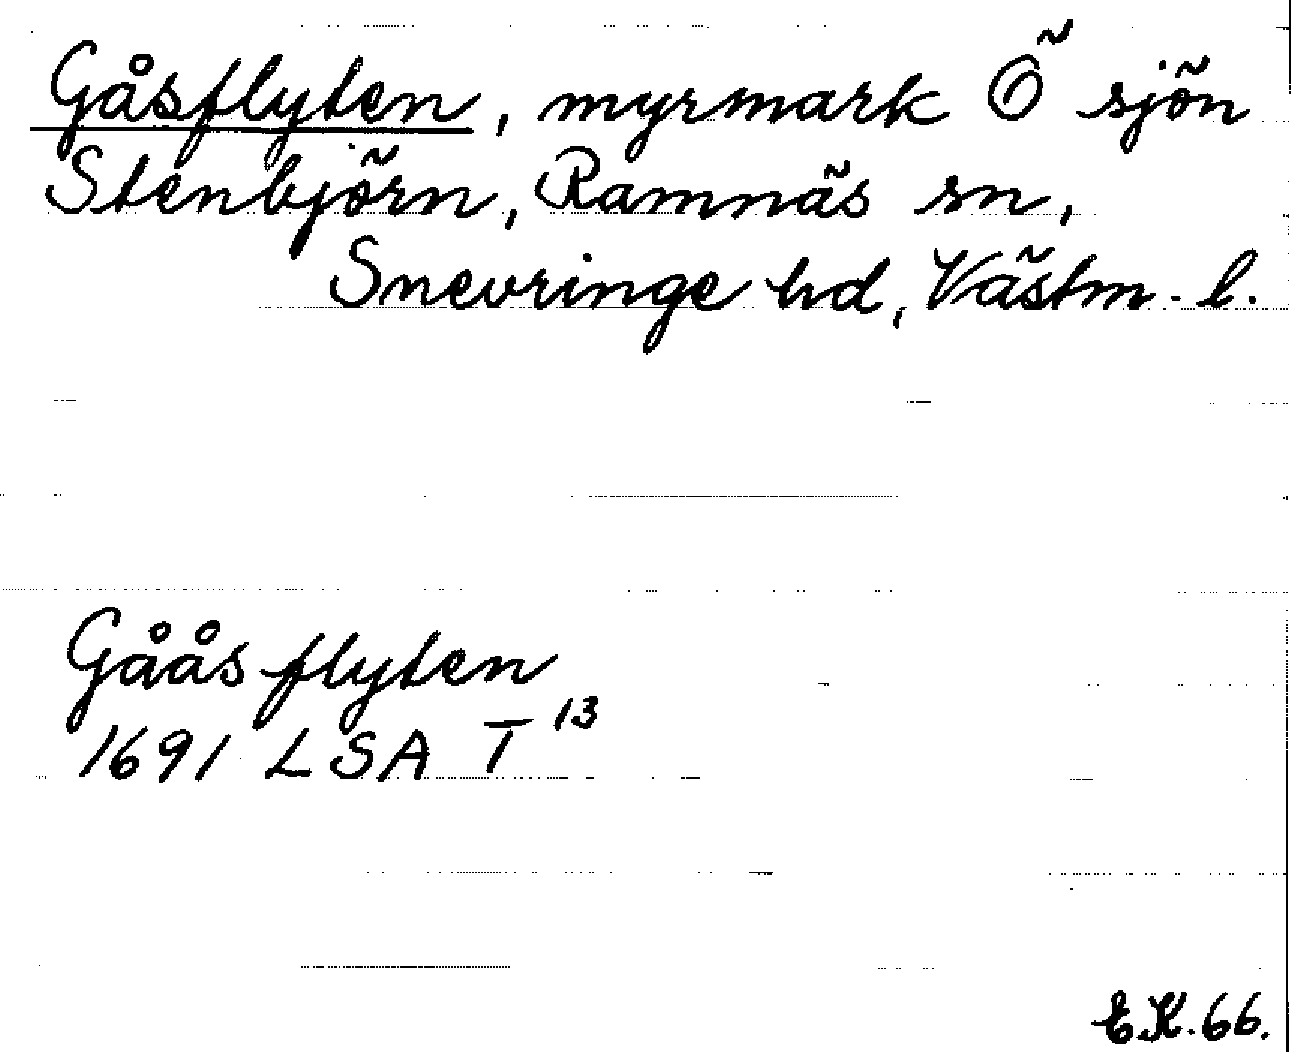 Gåsflyten, myrmark Ö sjön
Stenbjörn, Ramnäs sn,
Snevringe hd, Västm. l.
Gåås flyten
1691 LSA T 13
E.K. 66.